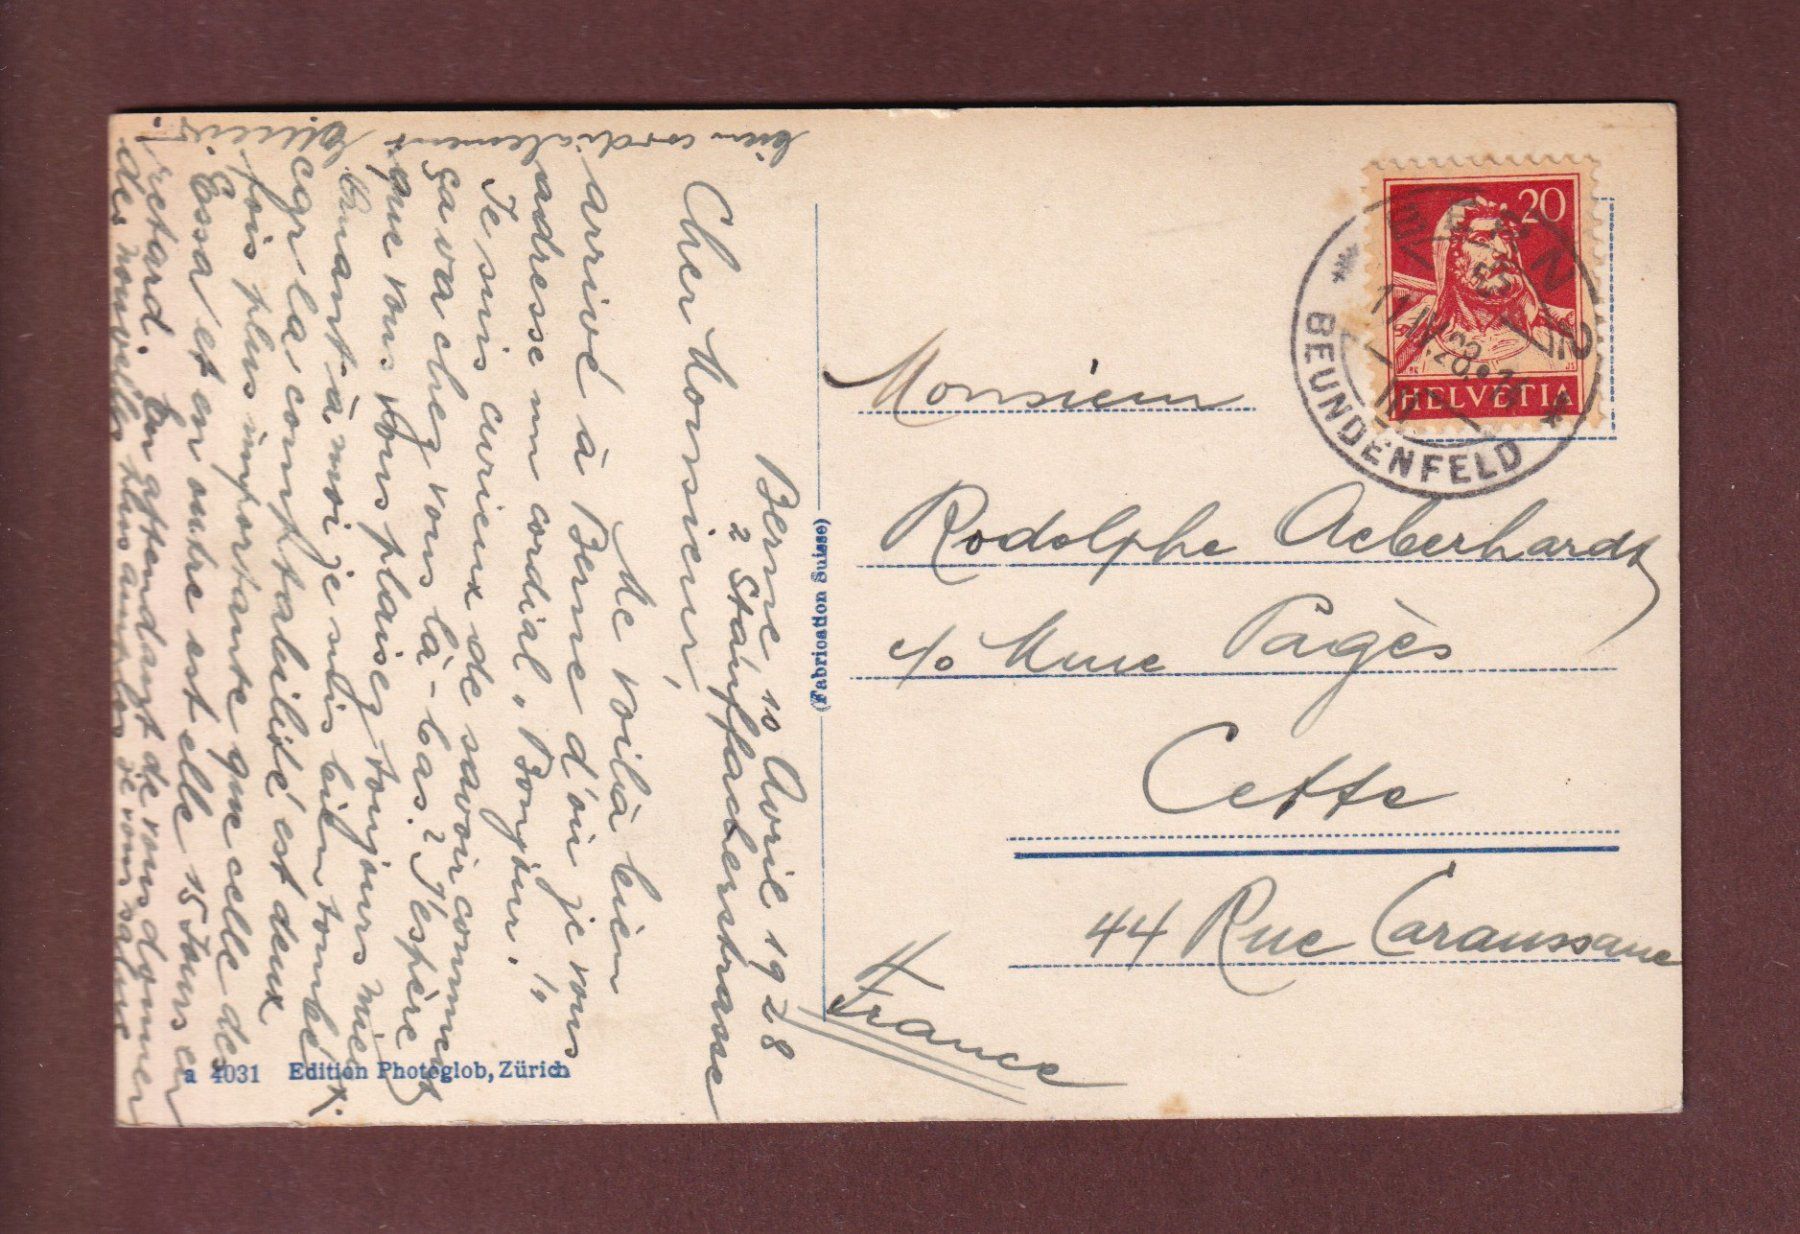 Berne, 10 Avril 1928
2 Staüffacherstrasse
Cher Monsieur,
Me voilà bien
arrivé à Berne d'où je vous
adresse un cordial „Bonjour!"
Je suis curieux de savoir comment
ça va chez vous là-bas? J'espère
que vous vous plaisez toujours
Quant à moi je suis bien tombé
car la comptabilité est deux
fois plus importante que celle de
Essa et en outre est elle 15 Jours en
retard. En attendant de vous donner
des nouvelles plus amples je vous salue
bien cordialement
a 4031 Edition Photoglob, Zürich
(Fabrication Suisse)
20
HELVETIA
BERN
BEUNDENFELD
Monsieur
Rodolphe Aeberhardt
c/o Mme Pagès
Cette
44 Rue Caraussane
France